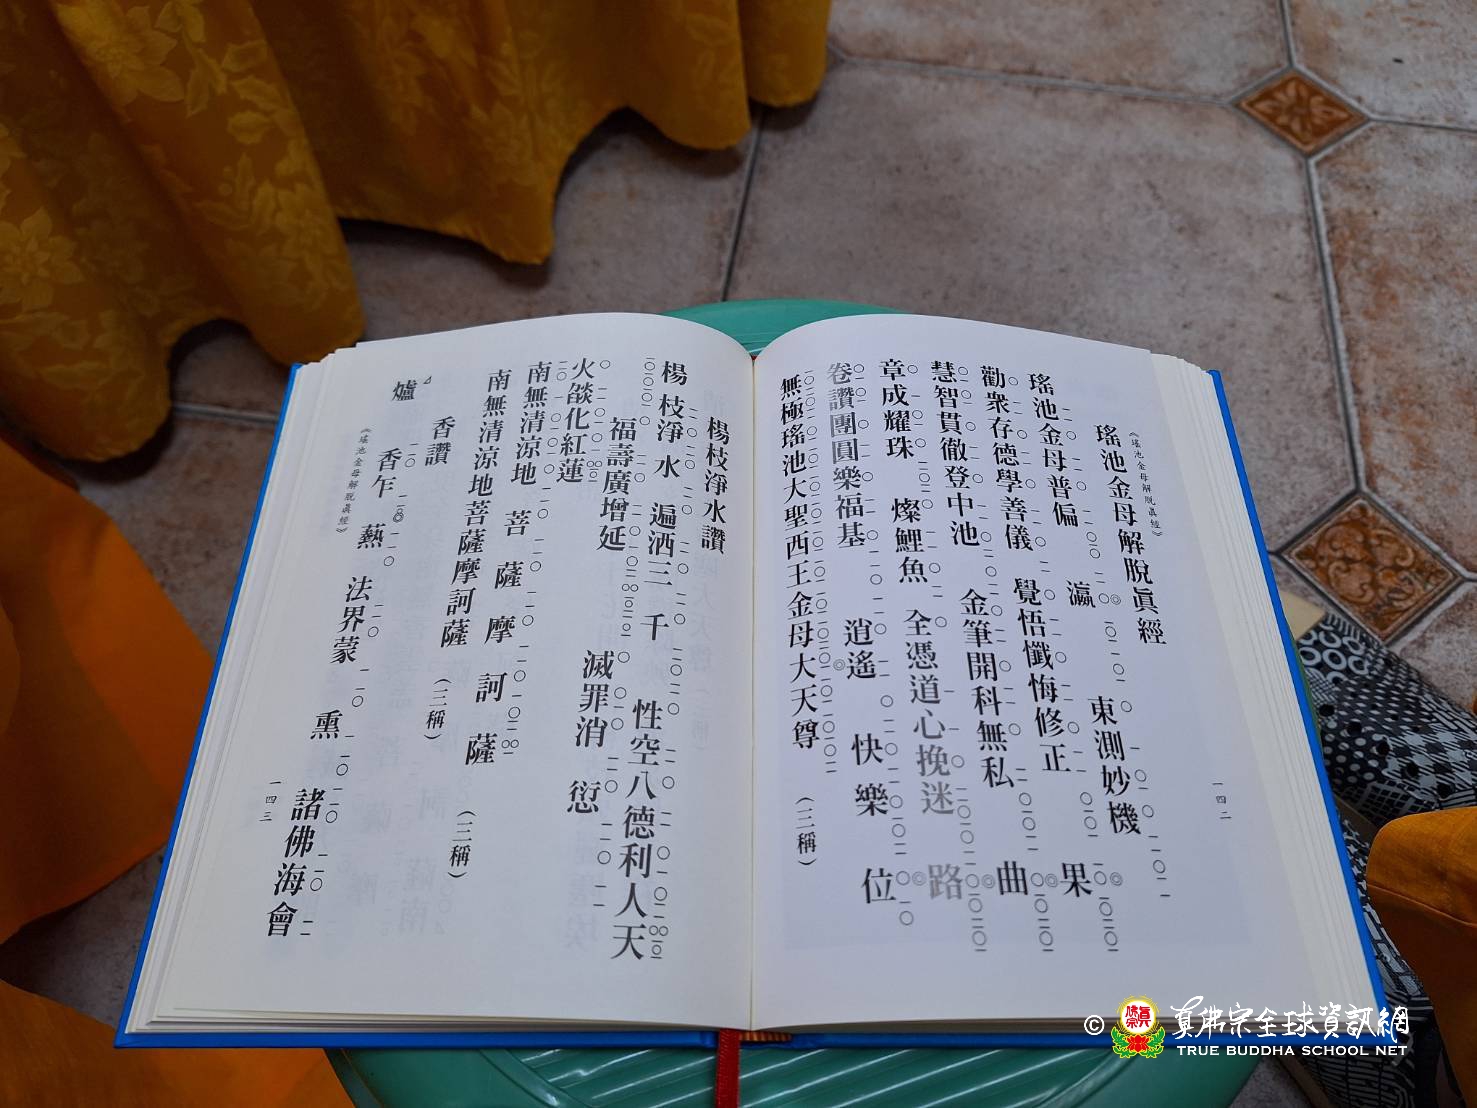 《瑤池金母解脫眞經》
一四二
瑤池金母解脫眞經
瑤池金母普偏 瀛 東測妙機
勸衆存德學善儀 覺悟懺悔修正 果
慧智貫徹登中池 金筆開科無私 曲
章成耀珠 燦鯉魚 全憑道心挽迷 路
卷讚團圓樂福基 逍遙 快樂 位
無極瑤池大聖西王金母大天尊 (三稱)
楊枝淨水讚
楊枝淨水 遍洒三千 性空八德利人天
福壽廣增延 滅罪消愆
火燄化紅蓮
南無清涼地 菩薩摩訶薩 (三稱)
南無清涼地菩薩摩訶薩 (三稱)
香讚
爐 香乍 爇 法界蒙 熏 諸佛海會
《瑤池金母解脫眞經》
一四三
© 真佛宗全球資訊網
TRUE BUDDHA SCHOOL NET